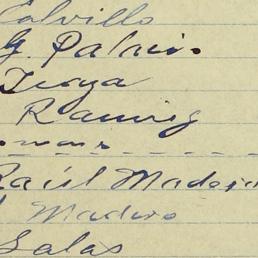 Calvillo
G. Palacio.
Ramirez
Raúl Madero
Madero
Salas